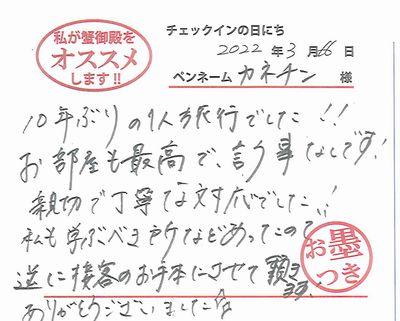 私が蟹御殿を
オススメ
します!!
チェックインの日にち
2022年3月 日
ペンネーム カネチン 様
10年ぶりの1人旅行でした!!
お部屋も最高で、言う事なしです!
親切で丁寧な対応でした!!
私も学ぶべき所などあったので
逆に接客のお手本にさせて頂き
ます。
ありがとうございました☆
お墨つき